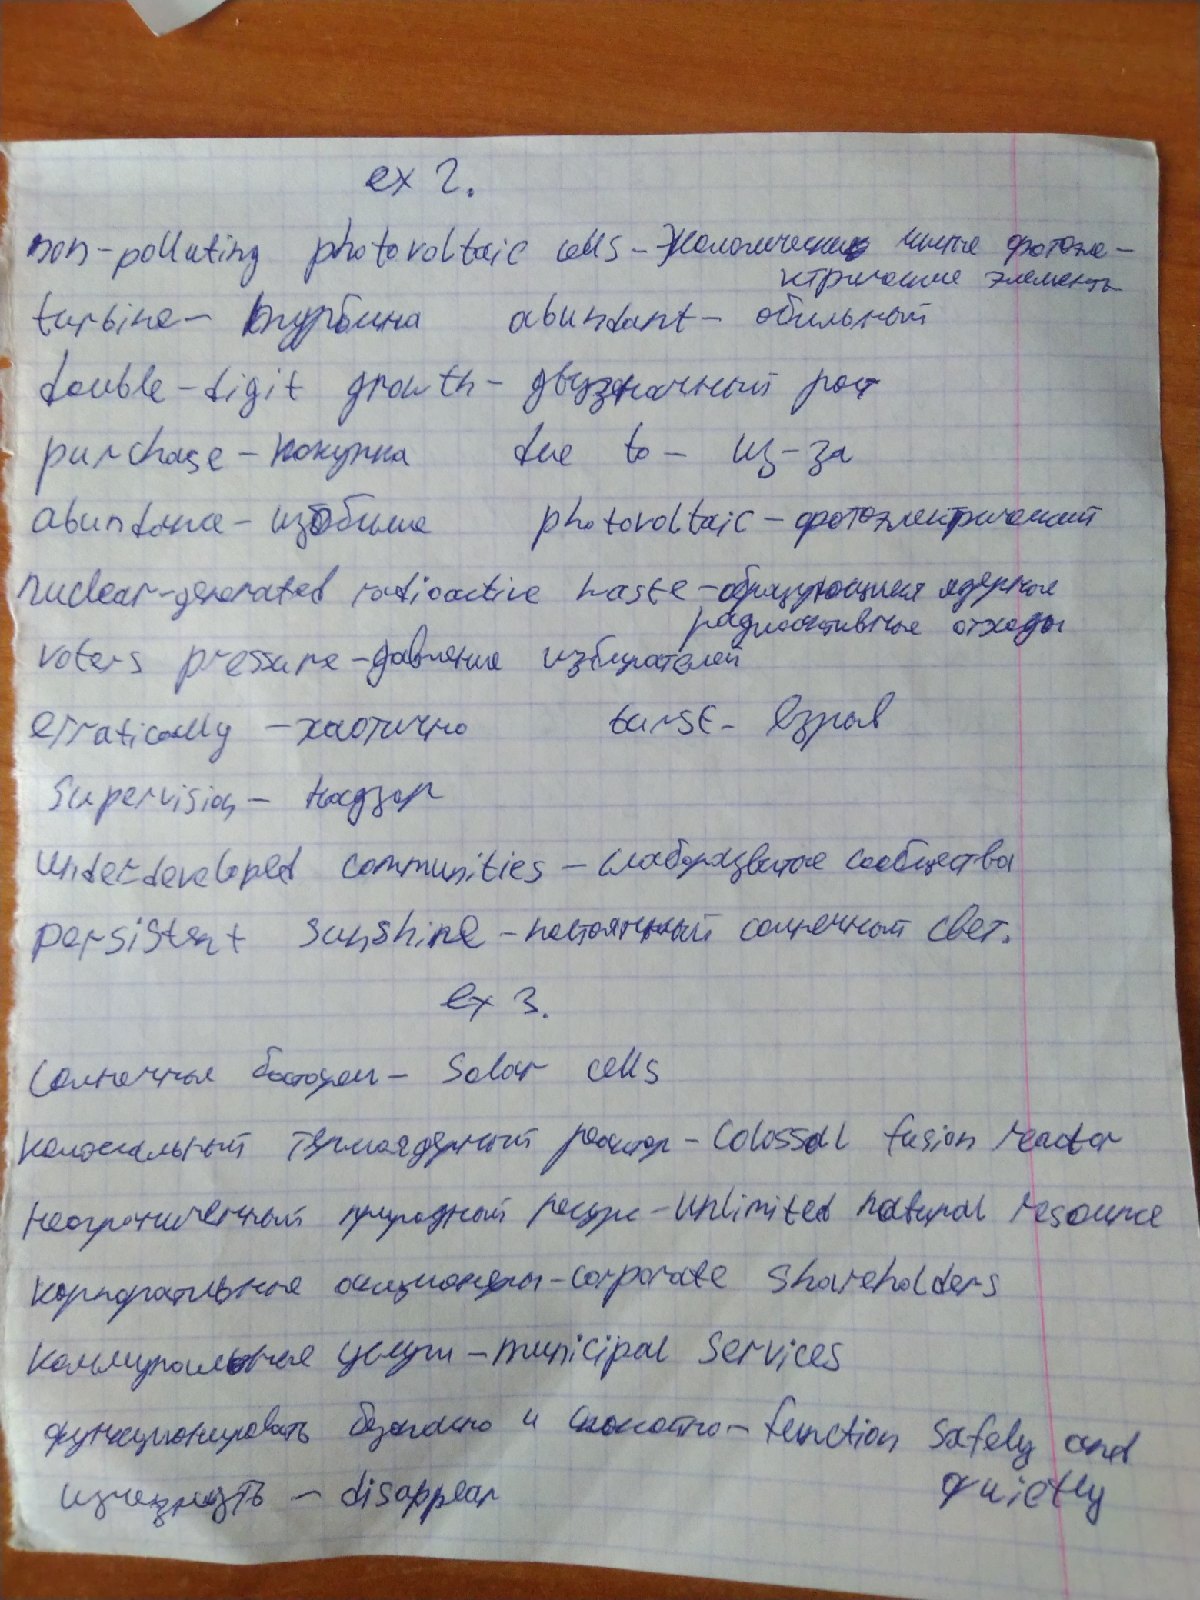 ex 2.
non-polluting photovoltaic cells - Экологически чистые фотоэле-
ктрические элементы
turbine - турбина abundant - обильный
double-digit growth - двузначный рост
purchase - покупка due to - из-за
abundance - изобилие photovoltaic - фотоэлектрический
nuclear-generated radioactive waste - образующиеся ядерные
радиоактивные отходы
voters pressure - давление избирателей
erratically - хаотично burst - взрыв
Supervision - надзор
underdeveloped communities - слаборазвитые сообщества
persistent sunshine - постоянный солнечный свет.
ex 3.
Солнечные батареи - Solar cells
колоссальный термоядерный реактор - Colossal fusion reactor
неограниченный природный ресурс - Unlimited natural resource
корпоративные акционеры - corporate shareholders
коммунальные услуги - municipal services
функционировать безопасно и спокойно - function safely and
quietly
изчезнуть - disappear